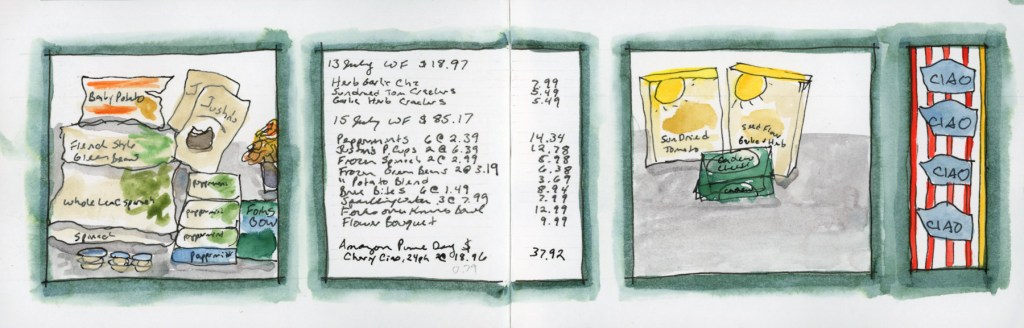 Baby Potato
Justin's
French Style
Green Beans
Whole Leaf Spinach
Spinach
Peppermint
Peppermint
Peppermint
Peppermint
Forks
Bow
13 July WF $18.97
Herb Garlic Chz 7.99
Sundried Tom Crackers 5.49
Garlic Herb Crackers 5.49
15 July WF $85.17
Peppermints 6 @ 2.39 14.34
Justins P. Cups 2 @ 6.39 12.78
Frozen Spinach 2 @ 2.99 5.98
Frozen Green Beans 2 @ 3.19 6.38
" Potato Blend 3.69
Brie Bites 6 @ 1.49 8.94
Sparkling Water 3 @ 7.99
Forks over Knives Bowl 12.99
Flower Bouquet 9.99
Amazon Prime Day $
Cherry Ciao, 24pk 2 @ 18.96 37.92
Sun Dried
Tomato
Seed Flour
Herb
CIAO
CIAO
CIAO
CIAO